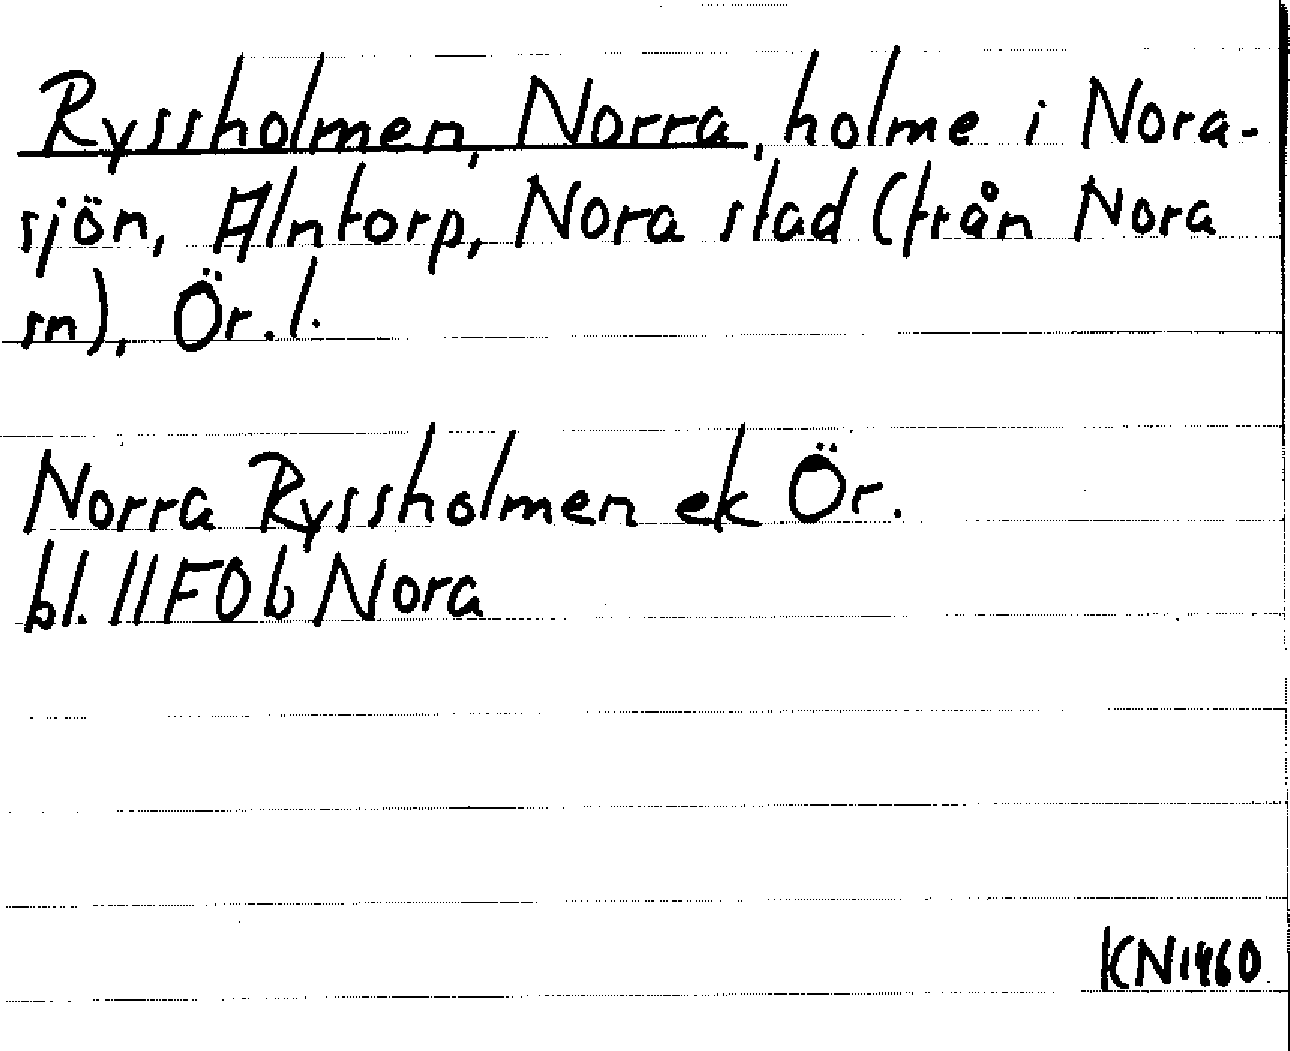 Ryssholmen, Norra, holme i Nora-
sjön, Alntorp, Nora stad (från Nora
sn), Ör. l.
Norra Ryssholmen ek Ör.
bl. 11F0b Nora
KN1960